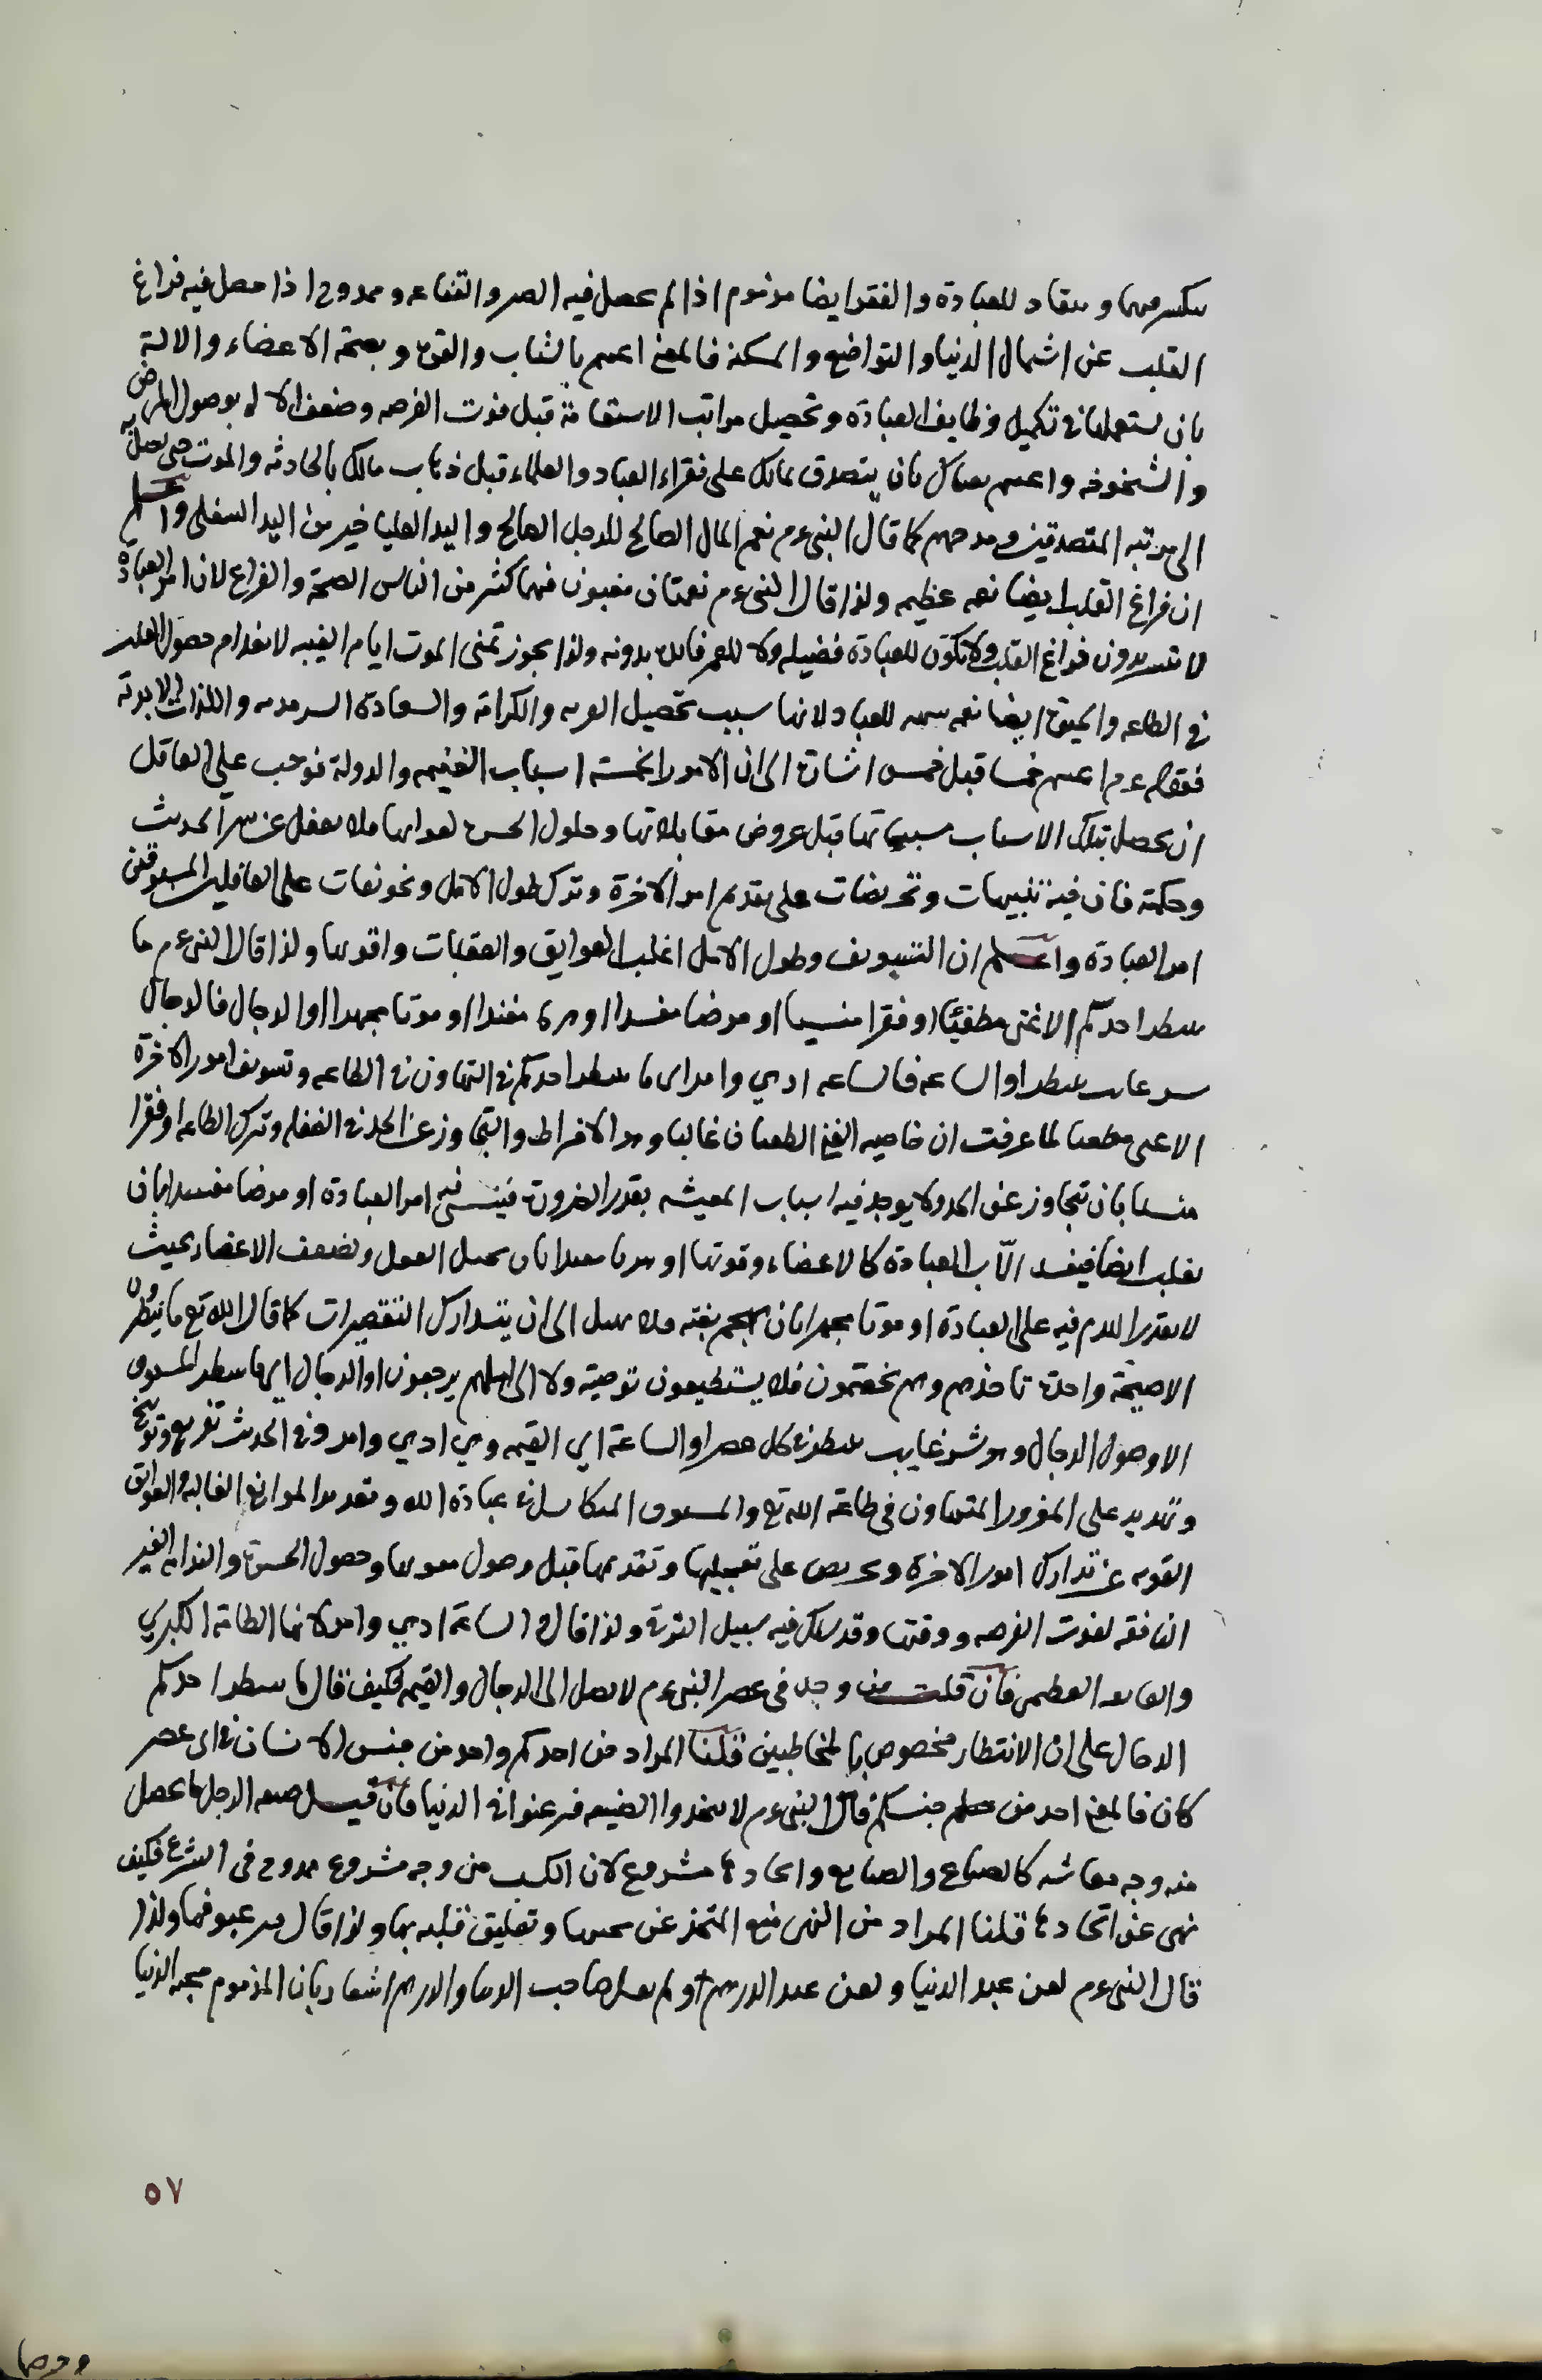 وينقاد للعبادة والفقر ايضا مذموم اذا لم يحصل فيه الصبر والقناعه وممدوح اذا حصل فيه فراغ
القلب عن اشغال الدنيا والتواضع والمسكنة فالمعنى اغتنم بالشباب والقوة وبصحة الاعضاء والالة
بان تستعملها في تكميل وظايف العبادة وتحصيل مراتب الاستقامة قبل فوت الفرصه وضعف الالة بوصول المرض
والشيخوخه واغتنم بان يتصدق بمالك على فقراء العباد والعلماء قبل ذهاب مالك بالحادثه والموت حتى
الى مرتبه المتصدقين ومدحهم كما قال النبي عم نعم المال الصالح للرجل الصالح واليد العليا خير من اليد السفلى واعلم
ان فراغ القلب ايضا نعمه عظيمه ولذا قال النبي عم نعمتان مغبون فيهما كثير من الناس الصحة والفراغ لان امر العبادة
بدون فراغ القلب ولا تكون للعبادة فضيله ولا للعمر فايدة بدونه ولذا يجوز تمني الموت ايام الغيبه لانعدام حصول
في الطاعه والحيوة ايضا نعمه للعباد لانها سبب تحصيل القربه والكرامة والسعادة السرمديه واللذات الابدية
فقوله عم اغتنم خمسا قبل خمس اشارة الى ان الامور الخمسة اسباب الغنيمه والدولة فوجب على العاقل
ان يحصل بتلك الاسباب مسبباتها قبل عروض مقابلاتها وحلول الحسرة فلا يغفل عن سر الحديث
وحكمته فان فيه تنبيهات وتحريضات على تقديم امر الاخرة وترك طول الامل وتخويفات على الغافلين المسوفين
امر العبادة واعلم ان التسويف وطول الامل اغلب العوايق والعقبات واقويها ولذا قال النبي عم ما
ينتظر احدكم الا غنى مطغيا او فقرا منسيا او مرضا مفسدا او هرما مفندا او موتا مجهزا او الدجال فالدجال
شر غايب ينتظر او الساعه فالساعه ادهي وامر اي ما ينتظر احدكم في التهاون في الطاعه وتسويف امور الاخرة
الا غنى مطغيا لما عرفت ان خاصيه الغنى الطغيان غالبا وهو الافراط والتجاوز عن الحد في الغفله وترك الطاعه او فقرا
منسيا بان تتجاوز عن الحد ولا يوجد فيه اسباب المعيشه بقدر الضرورة فينسى فيه امر العبادة او مرضا مفسدا بان
يغلب ايضا فيفسد الات العبادة كالاعضاء وقوتها او هرما مفندا بان العقل ويضعف الاعضاء بحيث
لا يقدر الهرم فيه على العبادة او موتا مجهزا بان بغتة فلا الى ان يتدارك التقصيرات كما قال الله تع ما ينظرون
الا صيحة واحدة تاخذهم وهم يخصمون فلا يستطيعون توصية ولا الى اهلهم يرجعون او الدجال اي ما ينتظر المسوف
الا وصول الدجال وهو شر غايب ينتظر في كل عصر او الساعة اي القيمه وهي ادهي وامر وفي الحديث تقريع وتوبيخ
وتهديد على المغرور المتهاون في طاعة الله تع والمسوف المتكاسل في عبادة الله وتعديد الموانع الغالبه والعوايق
القويه عن تدارك امور الاخرة وتحريص على تعجيلها وتقديمها قبل وصول وحصول الحسرة والندامه الغير
النافعه لفوت الفرصه ووقتها وقد سلك فيه سبيل الترقي ولذا قال والساعة ادهي وامر لانها الطامة الكبري
العظمى فان قلت من وجد في عصر النبي عم لا يصل الى الدجال والقيمه فكيف قال ما ينتظر احدكم
الدجال على ان الانتظار مخصوص بالمخاطبين قلنا المراد من احدكم واحد من جنس الانسان في اي عصر
كان فالمعنى احد من جنسكم قال النبي عم لا تتخذوا الضيعه فترغبوا في الدنيا فان قيل ضيعه الرجل ما يحصل
منه وجه معاشه كالضياع والصنايع واتخاذها مشروع لان الكسب من وجه مشروع ممدوح في الشرع فكيف
نهى عن اتخاذها قلنا المراد من النهي منع المتخذ عن وتعليق قلبه بها ولذا قال فترغبوا فيها ولذا
قال النبي عم لعن عبد الدنيا ولعن عبد الدرهم ولم يقل صاحب الدنيا والدرهم اشعارا بان المذموم محبة الدنيا
٥٧
وحرصها